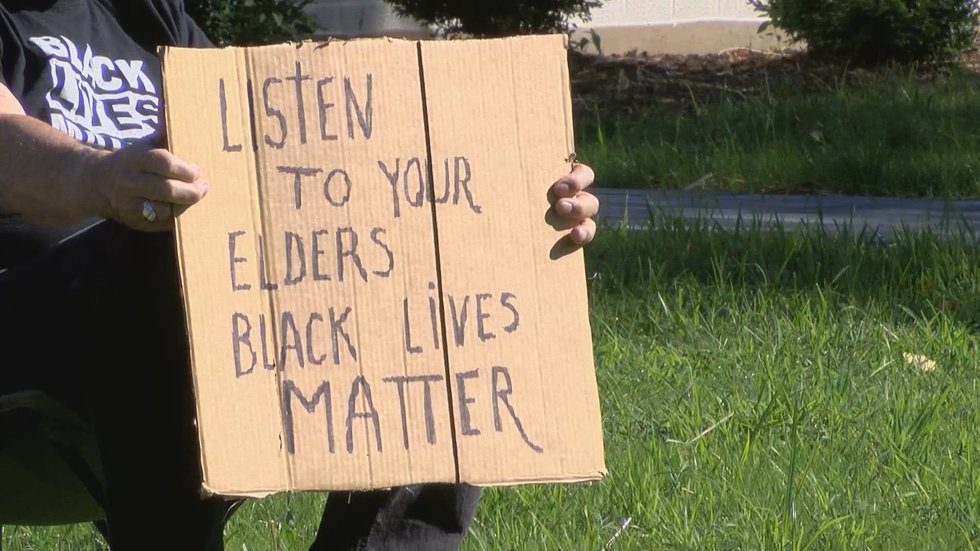 BLACK
LIVES
LISTEN
TO YOUR
ELDERS
BLACK LiVES
MATTER